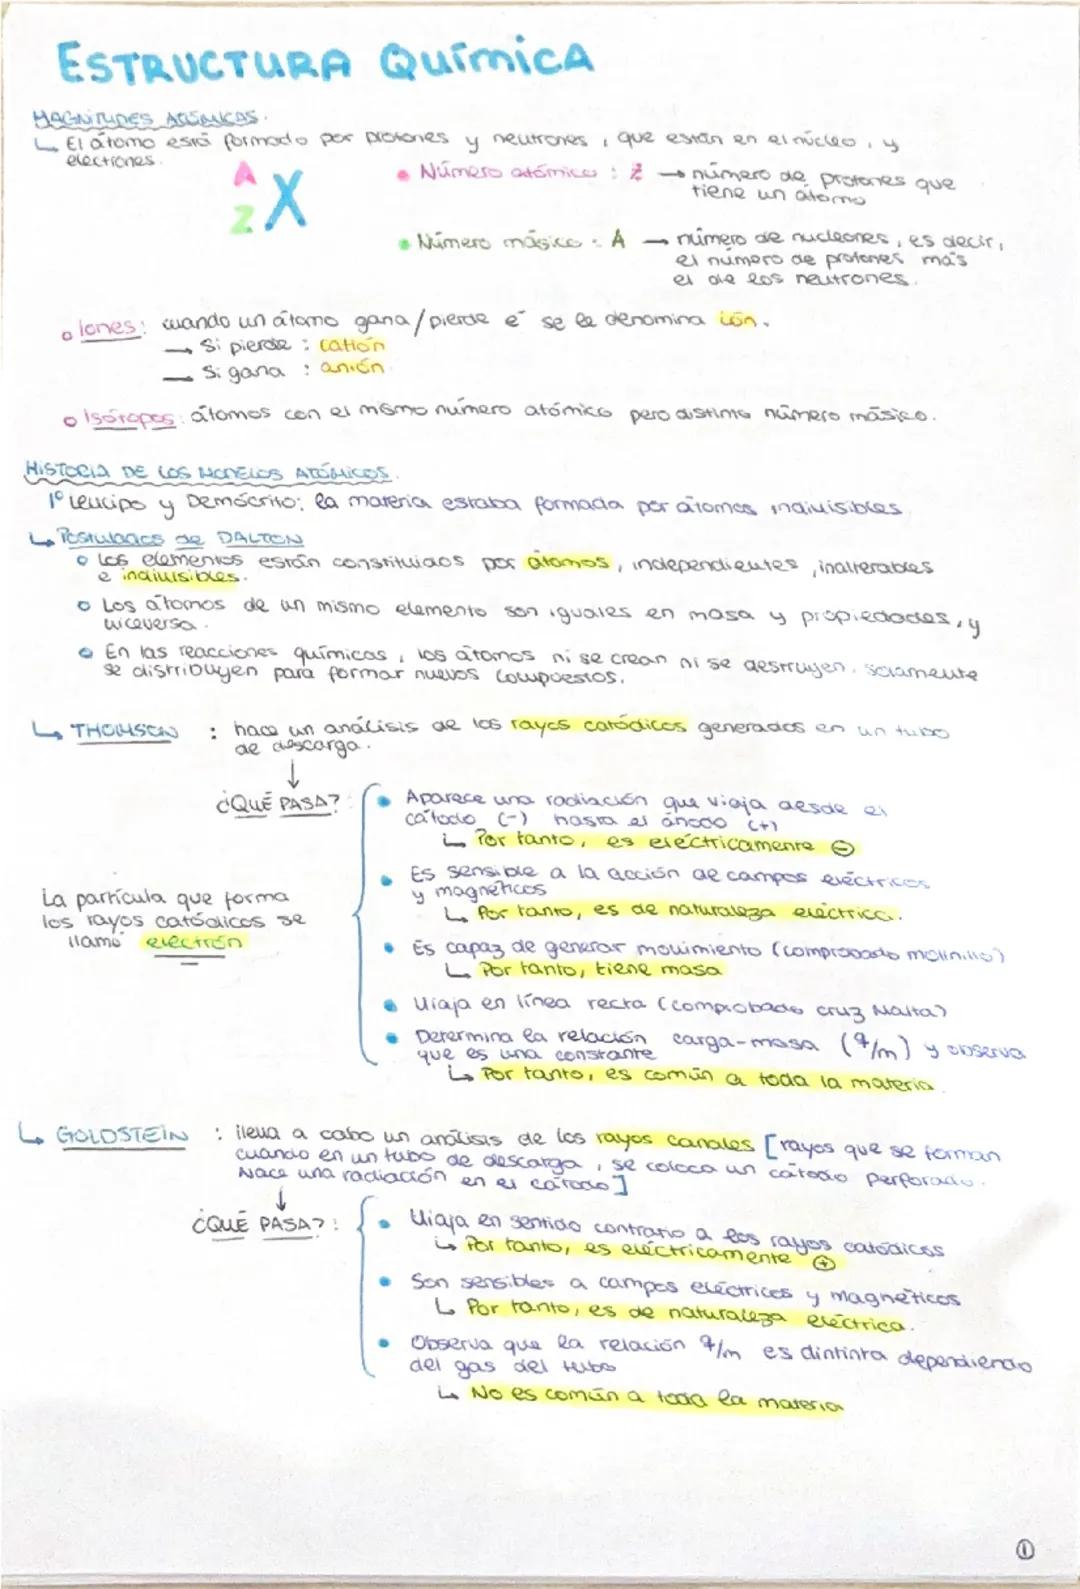 ESTRUCTURA QUÍMICA
MAGNITUDES ATÓMICAS.
↳ El átomo está formado por protones y neutrones, que están en el núcleo, y
electrones.
A
Z X
• Número atómico: Z → número de protones que
tiene un átomo
• Número másico: A → número de nucleones, es decir,
el número de protones más
el de los neutrones.
o Iones: cuando un átomo gana/pierde e⁻ se le denomina ión.
→ Si pierde: catión
→ Si gana: anión.
o Isótopos: átomos con el mismo número atómico pero distinto número másico.
HISTORIA DE LOS MODELOS ATÓMICOS.
1º Leucipo y Demócrito: la materia estaba formada por átomos indivisibles
↳ Postulados de DALTON
o Los elementos están constituidos por átomos, independientes, inalterables
e indivisibles.
o Los átomos de un mismo elemento son iguales en masa y propiedades, y
viceversa.
o En las reacciones químicas, los átomos ni se crean ni se destruyen, solamente
se distribuyen para formar nuevos compuestos.
↳ THOMSON: hace un análisis de los rayos catódicos generados en un tubo
de descarga.
↓
¿QUÉ PASA?:
• Aparece una radiación que viaja desde el
cátodo (-) hasta el ánodo (+)
↳ Por tanto, es eléctricamente ⊖
• Es sensible a la acción de campos eléctricos
y magnéticos
↳ Por tanto, es de naturaleza eléctrica.
La partícula que forma
los rayos catódicos se
llamó electrón
• Es capaz de generar movimiento (comprobado molinillo)
↳ Por tanto, tiene masa
• Viaja en línea recta (comprobado cruz Malta)
• Determina la relación carga-masa (q/m) y observa
que es una constante
↳ Por tanto, es común a toda la materia.
↳ GOLDSTEIN: lleva a cabo un análisis de los rayos canales [rayos que se forman
cuando en un tubo de descarga, se coloca un cátodo perforado.
Nace una radiación en el cátodo]
↓
¿QUÉ PASA?:
• Viaja en sentido contrario a los rayos catódicos
↳ Por tanto, es eléctricamente ⊕
• Son sensibles a campos eléctricos y magnéticos
↳ Por tanto, es de naturaleza eléctrica.
• Observa que la relación q/m es dintinta dependiendo
del gas del tubo
↳ No es común a toda la materia
①